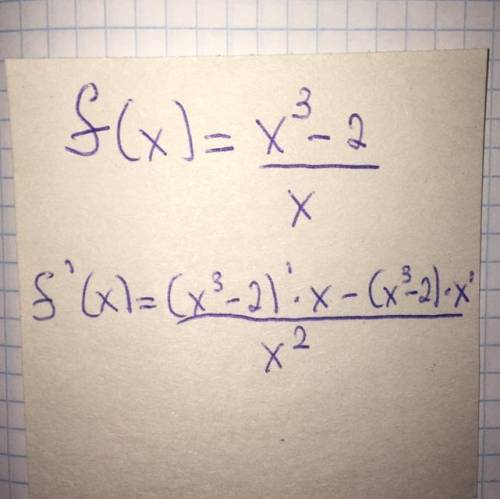 f(x) = x³ - 2
x
f'(x) = (x³ - 2)' · x - (x³ - 2) · x'
x²